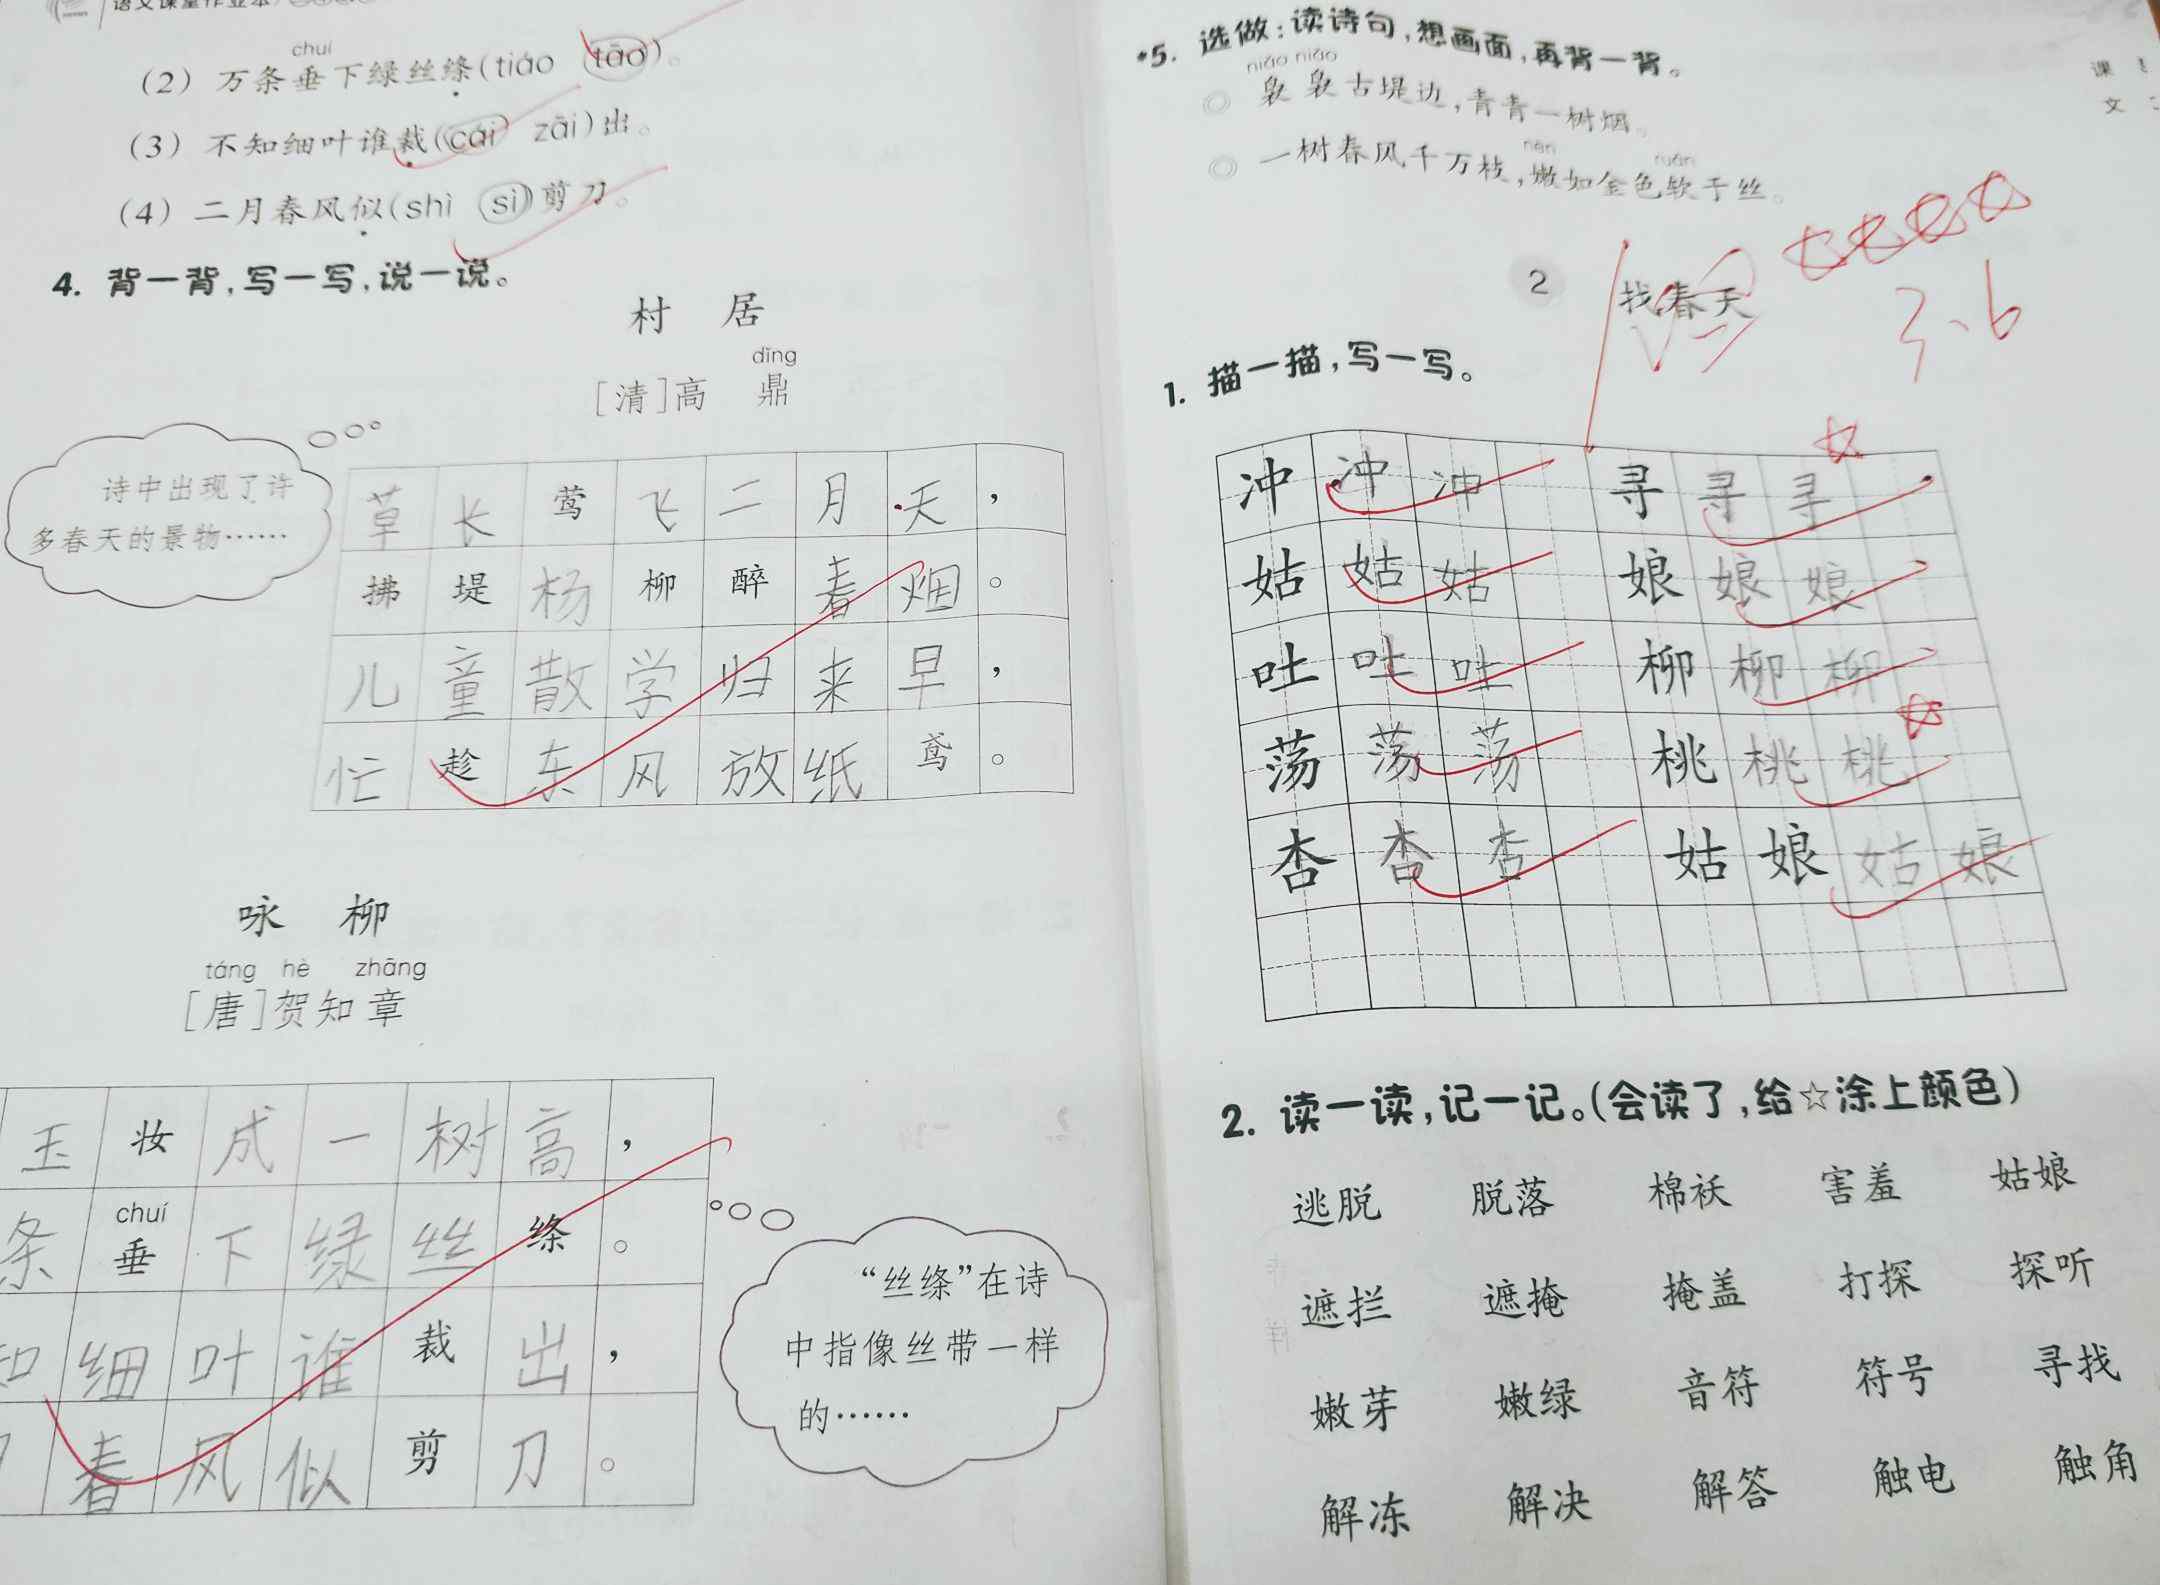 语文课堂作业本
chuí
(2) 万条垂下绿丝绦(tiáo tāo)。
(3) 不知细叶谁裁(cái zāi)出。
(4) 二月春风似(shì sì)剪刀。
4. 背一背,写一写,说一说。
村 居
dǐng
[清]高 鼎
诗中出现了许
多春天的景物……
草长莺飞二月天,
拂堤杨柳醉春烟。
儿童散学归来早,
忙趁东风放纸鸢。
咏 柳
táng hè zhāng
[唐]贺知章
玉妆成一树高,
chuí
条垂下绿丝绦。
知细叶谁裁出,
春风似剪刀。
“丝绦”在诗
中指像丝带一样
的……
*5. 选做:读诗句,想画面,再背一背。
niǎo niǎo
◎ 袅袅古堤边,青青一树烟。
nèn ruǎn
◎ 一树春风千万枝,嫩如金色软于丝。
课
文
2 找春天
3.6
1. 描一描,写一写。
冲 冲 冲 寻 寻 寻
姑 姑 姑 娘 娘 娘
吐 吐 吐 柳 柳 柳
荡 荡 荡 桃 桃 桃
杏 杏 杏 姑 娘 姑 娘
2. 读一读,记一记。(会读了,给☆涂上颜色)
逃脱 脱落 棉袄 害羞 姑娘
遮拦 遮掩 掩盖 打探 探听
嫩芽 嫩绿 音符 符号 寻找
解冻 解决 解答 触电 触角